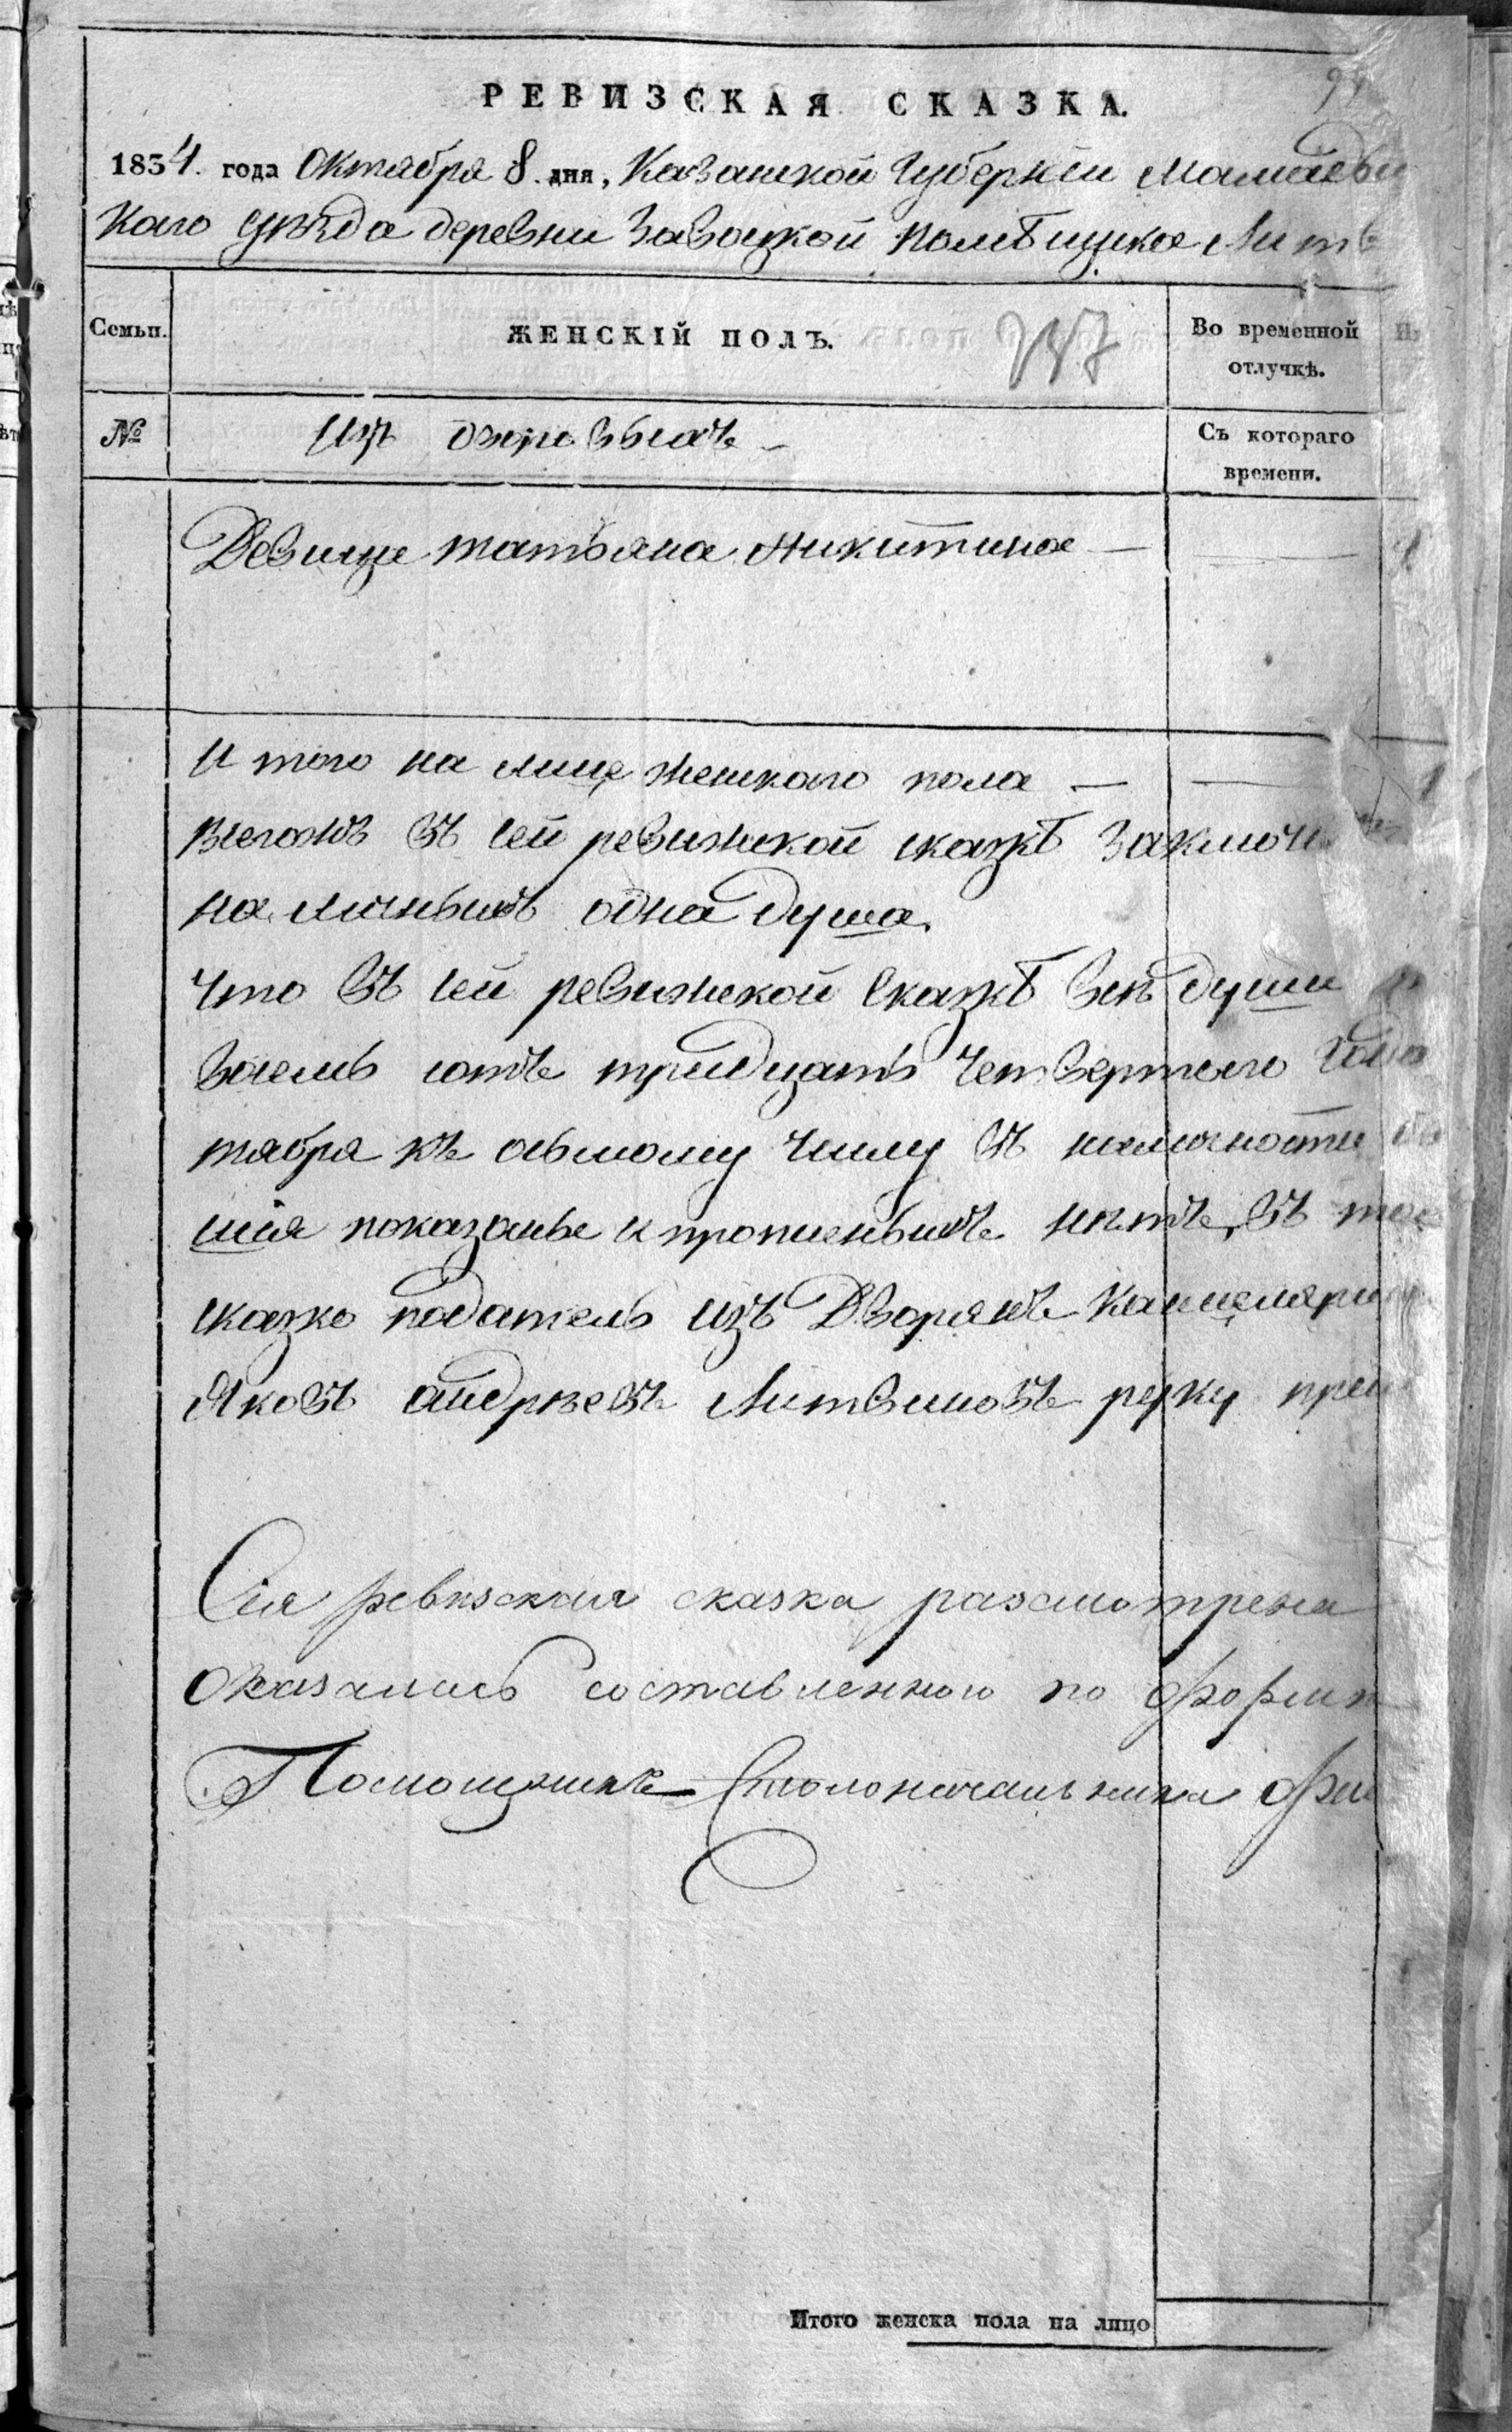 РЕВИЗСКАЯ СКАЗКА.
1834. года Октября 8. дня, Казанской Губерніи Мамадыш
каго уѣзда деревни Завоцкой помѣщика Литв
Семьи. ЖЕНСКІЙ ПОЛЪ. Во временной отлучкѣ.
№ изъ дворовыхъ Съ котораго времени.
Девица татьяна Никитина — —
И того на лице женскаго пола — — 1
Всегожъ въ сей ревижской сказкѣ заключ
на личныхъ одна душа.
Что въ сей ревижской сказкѣ всѣ души
восемь сотъ тридцать четвертого года
тября къ осьмому числу въ наличности бы
шія показаны и прописныхъ нѣтъ, въ том
сказко податель изъ Дворянъ Канцеляри
Яковъ андрѣевъ Литвиновъ руку при
Сія ревизская сказка разсмотрена
оказалась составленною по форме
Помощникъ Столоначальника
Итого женска пола на лицо